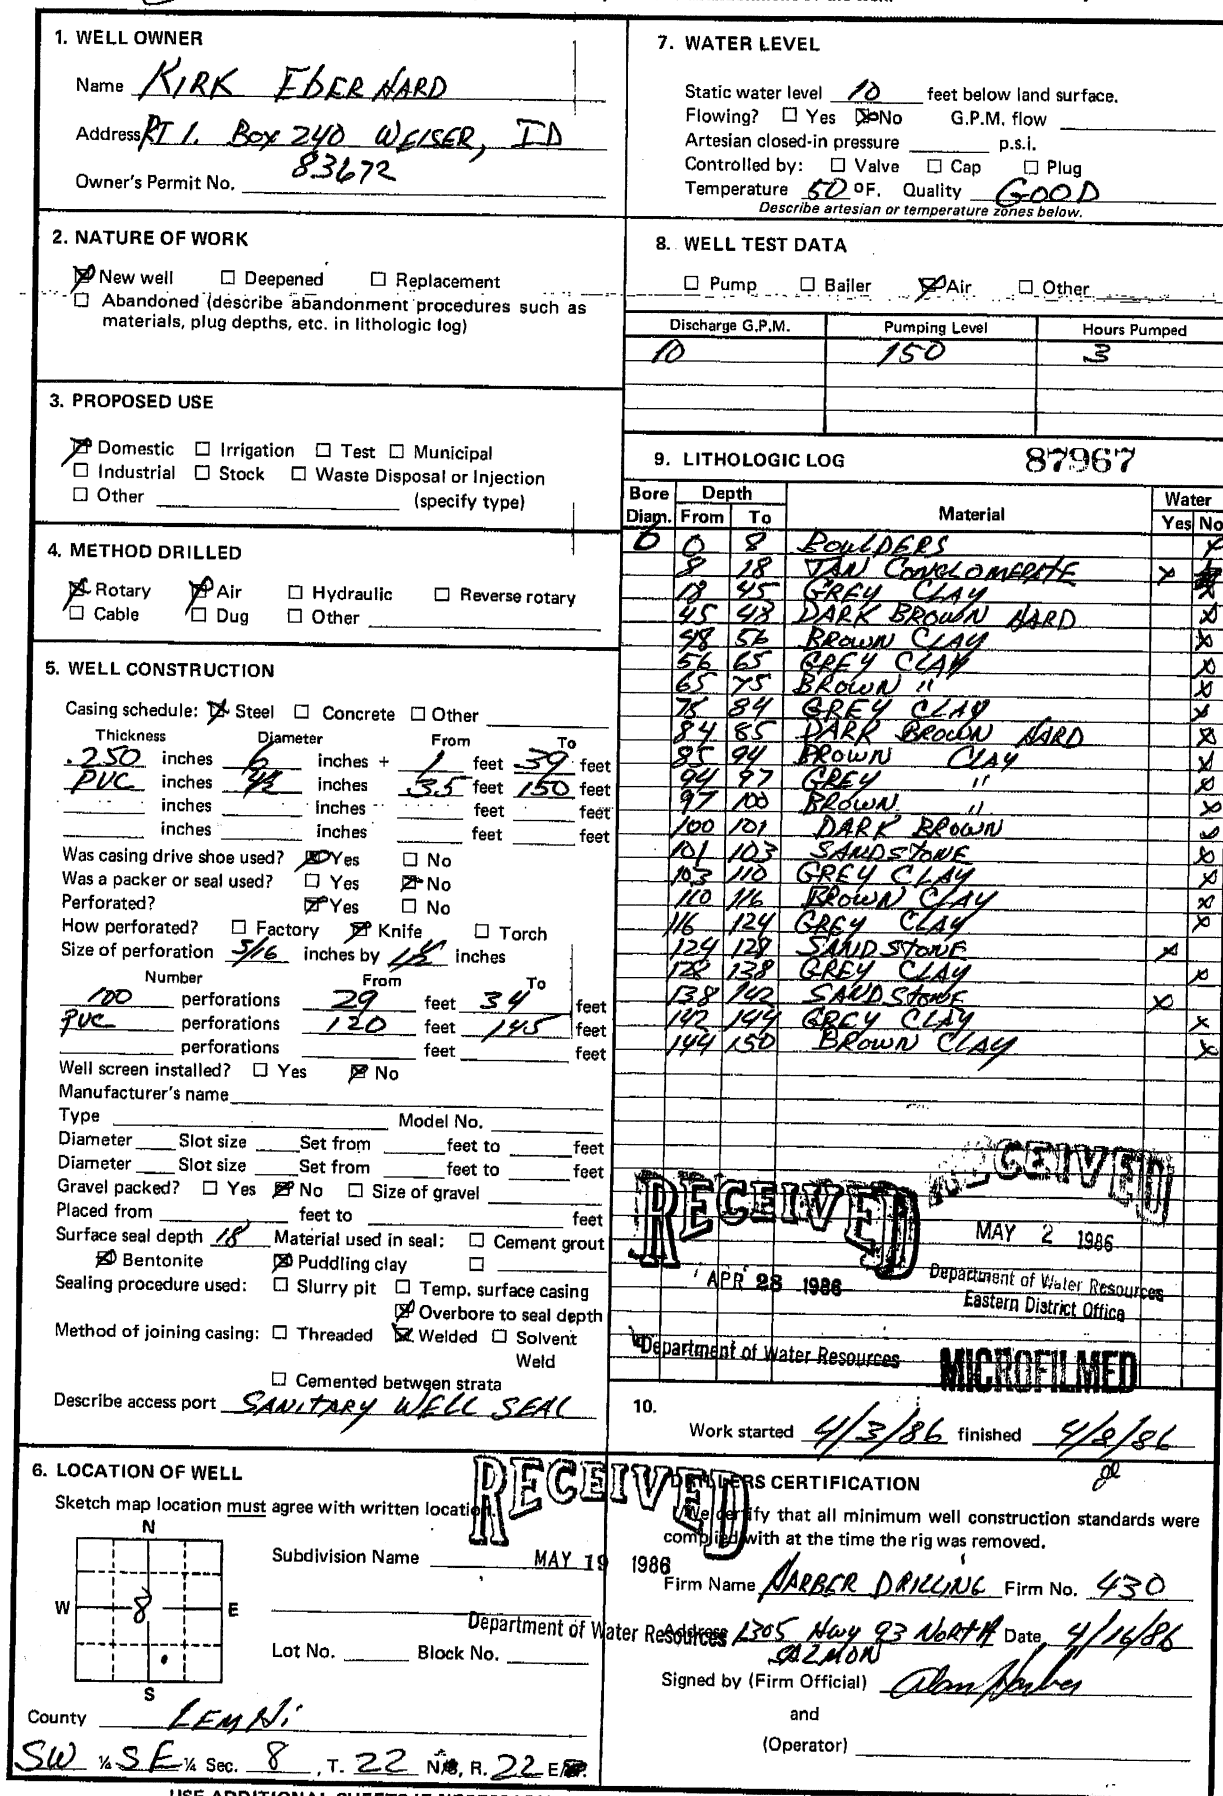 1. WELL OWNER
Name KIRK EBERHARD
Address RT 1. Box 240 WEISER, ID
83672
Owner's Permit No.
2. NATURE OF WORK
New well Deepened Replacement
Abandoned (describe abandonment procedures such as
materials, plug depths, etc. in lithologic log)
3. PROPOSED USE
Domestic Irrigation Test Municipal
Industrial Stock Waste Disposal or Injection
Other (specify type)
4. METHOD DRILLED
Rotary Air Hydraulic Reverse rotary
Cable Dug Other
5. WELL CONSTRUCTION
Casing schedule: Steel Concrete Other
Thickness Diameter From To
.250 inches 6 inches + 1 feet 39 feet
PVC inches 4½ inches 35 feet 150 feet
inches inches feet feet
inches inches feet feet
Was casing drive shoe used? Yes No
Was a packer or seal used? Yes No
Perforated? Yes No
How perforated? Factory Knife Torch
Size of perforation 5/16 inches by 1½ inches
Number From To
100 perforations 29 feet 34 feet
PVC perforations 120 feet 145 feet
perforations feet feet
Well screen installed? Yes No
Manufacturer's name
Type Model No.
Diameter Slot size Set from feet to feet
Diameter Slot size Set from feet to feet
Gravel packed? Yes No Size of gravel
Placed from feet to feet
Surface seal depth 18' Material used in seal: Cement grout
Bentonite Puddling clay
Sealing procedure used: Slurry pit Temp. surface casing
Overbore to seal depth
Method of joining casing: Threaded Welded Solvent
Weld
Cemented between strata
Describe access port SANITARY WELL SEAL
6. LOCATION OF WELL
Sketch map location must agree with written location.
N
W 8 E
S
Subdivision Name
Lot No. Block No.
County LEMHI
SW ¼ SE ¼ Sec. 8, T. 22 N, R. 22 E
7. WATER LEVEL
Static water level 10 feet below land surface.
Flowing? Yes No G.P.M. flow
Artesian closed-in pressure p.s.i.
Controlled by: Valve Cap Plug
Temperature 50 °F. Quality GOOD
Describe artesian or temperature zones below.
8. WELL TEST DATA
Pump Bailer Air Other
Discharge G.P.M. Pumping Level Hours Pumped
10 150 3
9. LITHOLOGIC LOG 87967
Bore Depth Water
Diam. From To Material Yes No
6 0 8 BOULDERS X
8 18 TAN CONGLOMERATE X
18 45 GREY CLAY X
45 48 DARK BROWN HARD X
48 56 BROWN CLAY X
56 65 GREY CLAY X
65 75 BROWN " X
75 84 GREY CLAY X
84 85 DARK BROWN HARD X
85 94 BROWN CLAY X
94 97 GREY " X
97 100 BROWN " X
100 101 DARK BROWN X
101 103 SANDSTONE X
103 110 GREY CLAY X
110 116 BROWN CLAY X
116 124 GREY CLAY X
124 128 SANDSTONE X
128 138 GREY CLAY X
138 142 SANDSTONE X
142 144 GREY CLAY X
144 150 BROWN CLAY X
RECEIVED
APR 28 1986
Department of Water Resources
RECEIVED
MAY 2 1986
Department of Water Resources
Eastern District Office
MICROFILMED
10.
Work started 4/3/86 finished 4/8/86
RECEIVED
MAY 19 1986
Department of Water Resources
DRILLERS CERTIFICATION
I/We certify that all minimum well construction standards were
complied with at the time the rig was removed.
Firm Name HARBER DRILLING Firm No. 430
Address 1305 Hwy 93 NORTH Date 4/16/86
SALMON
Signed by (Firm Official) Alan Harber
and
(Operator)